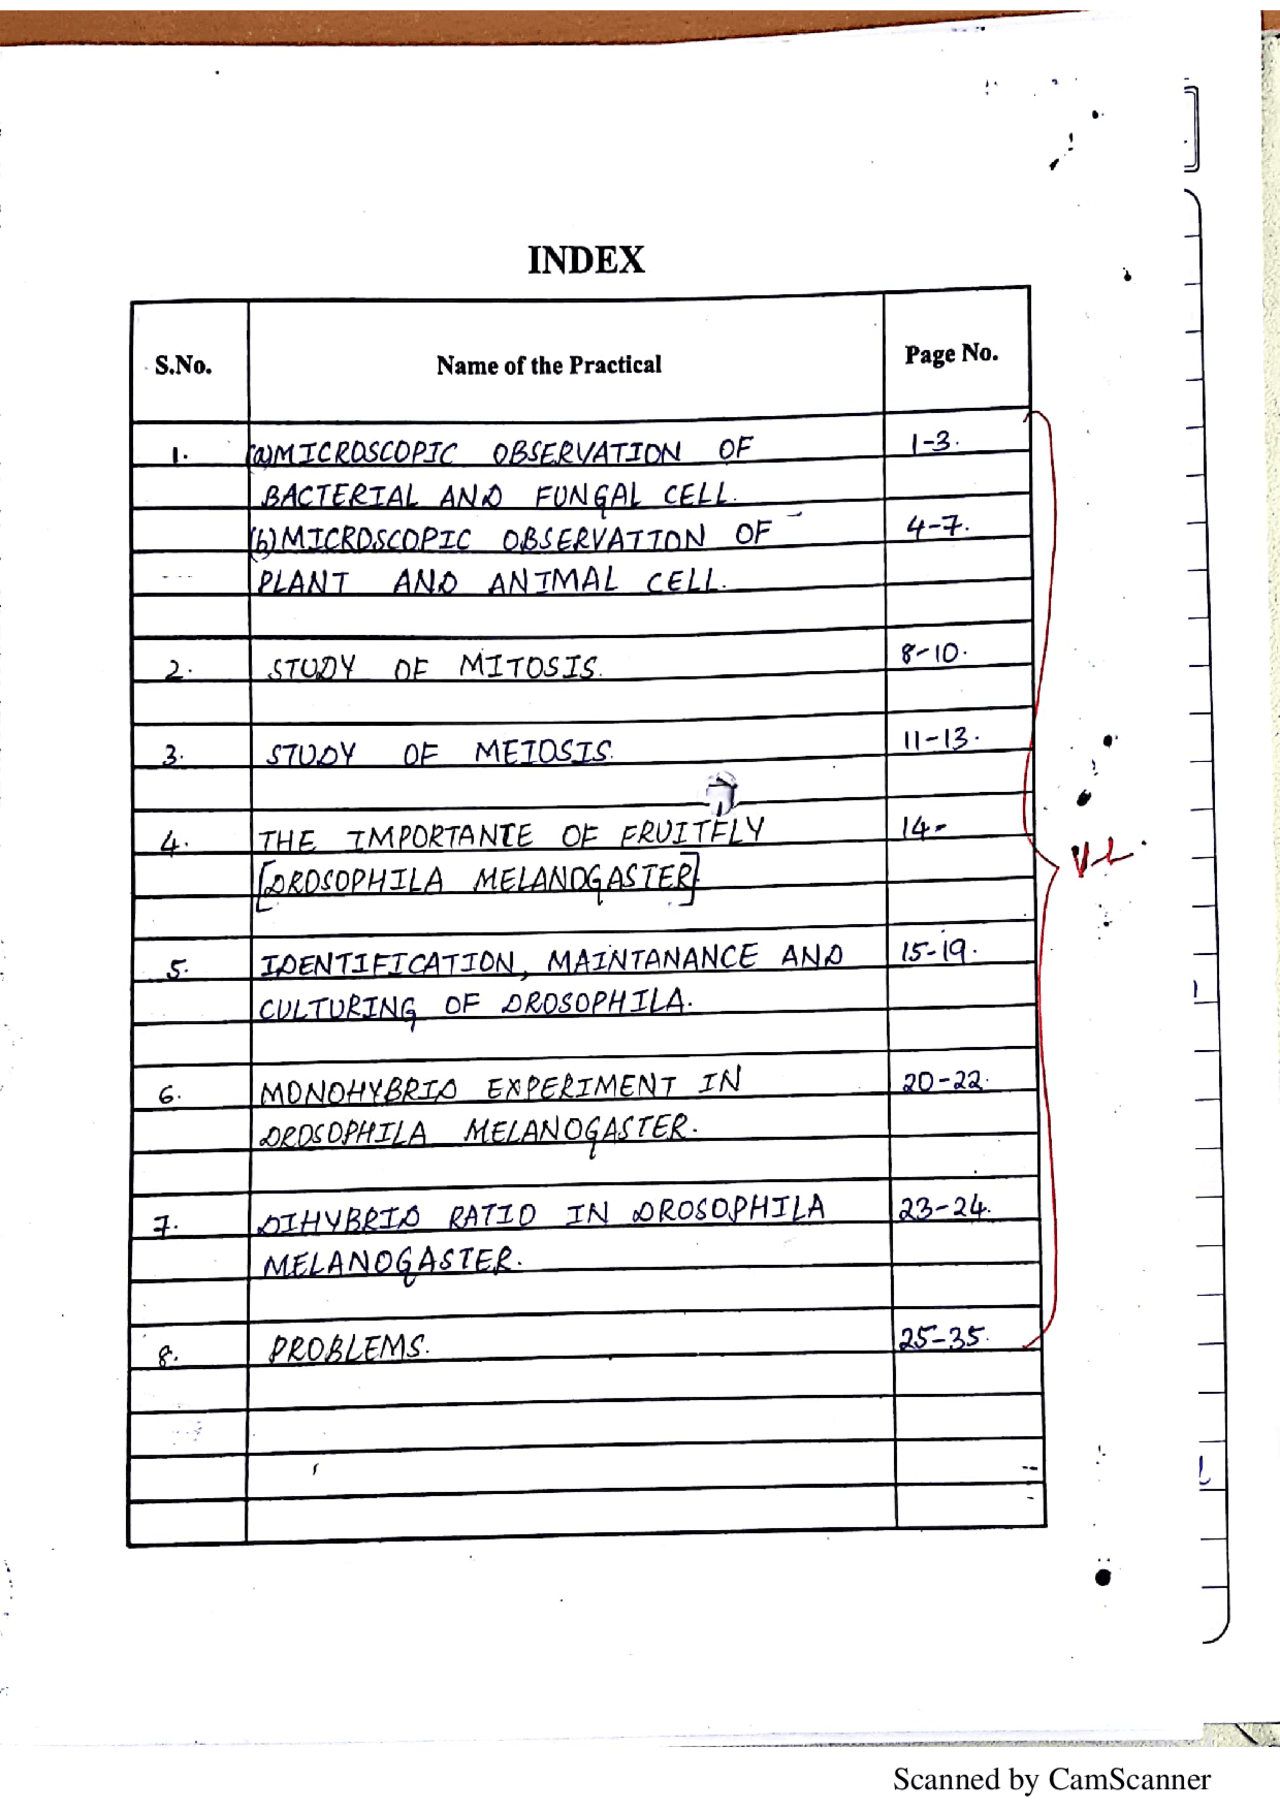 INDEX
S.No. Name of the Practical Page No.
1. (a) MICROSCOPIC OBSERVATION OF 1-3.
BACTERIAL AND FUNGAL CELL.
(b) MICROSCOPIC OBSERVATION OF 4-7.
PLANT AND ANIMAL CELL.
2. STUDY OF MITOSIS. 8-10.
3. STUDY OF MEIOSIS. 11-13.
4. THE IMPORTANTE OF FRUITFLY 14-
[DROSOPHILA MELANOGASTER].
5. IDENTIFICATION, MAINTANANCE AND 15-19.
CULTURING OF DROSOPHILA.
6. MONOHYBRID EXPERIMENT IN 20-22.
DROSOPHILA MELANOGASTER.
7. DIHYBRID RATIO IN DROSOPHILA 23-24.
MELANOGASTER.
8. PROBLEMS. 25-35.
Scanned by CamScanner